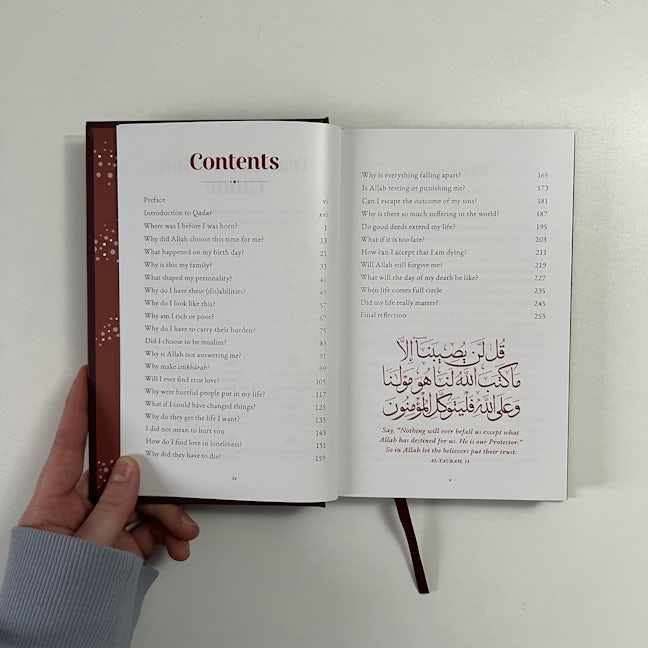 Contents
Preface vi
Introduction to Qadar xvi
Where was I before I was born? 1
Why did Allah choose this time for me? 13
What happened on my birth day? 21
Why is this my family? 33
What shaped my personality? 41
Why do I have these (dis)abilities? 49
Why do I look like this? 57
Why am I rich or poor? 67
Why do I have to carry their burden? 75
Did I choose to be muslim? 83
Why is Allah not answering me? 91
Why make istikhārah? 99
Will I ever find true love? 105
Why were hurtful people put in my life? 117
What if I could have changed things? 125
Why do they get the life I want? 133
I did not mean to hurt you 143
How do I find love in loneliness? 151
Why did they have to die? 159
iv
Why is everything falling apart? 165
Is Allah testing or punishing me? 173
Can I escape the outcome of my sins? 181
Why is there so much suffering in the world? 187
Do good deeds extend my life? 195
What if it is too late? 203
How can I accept that I am dying? 211
Will Allah still forgive me? 219
What will the day of my death be like? 227
When life comes full circle 235
Did my life really matter? 245
Final reflection 253
قُل لَّن يُصِيبَنَا إِلَّا
مَا كَتَبَ اللَّهُ لَنَا هُوَ مَوْلَىٰنَا
وَعَلَى اللَّهِ فَلْيَتَوَكَّلِ الْمُؤْمِنُونَ
Say, "Nothing will ever befall us except what
Allah has destined for us. He is our Protector."
So in Allah let the believers put their trust.
AL-TAUBAH, 51
v